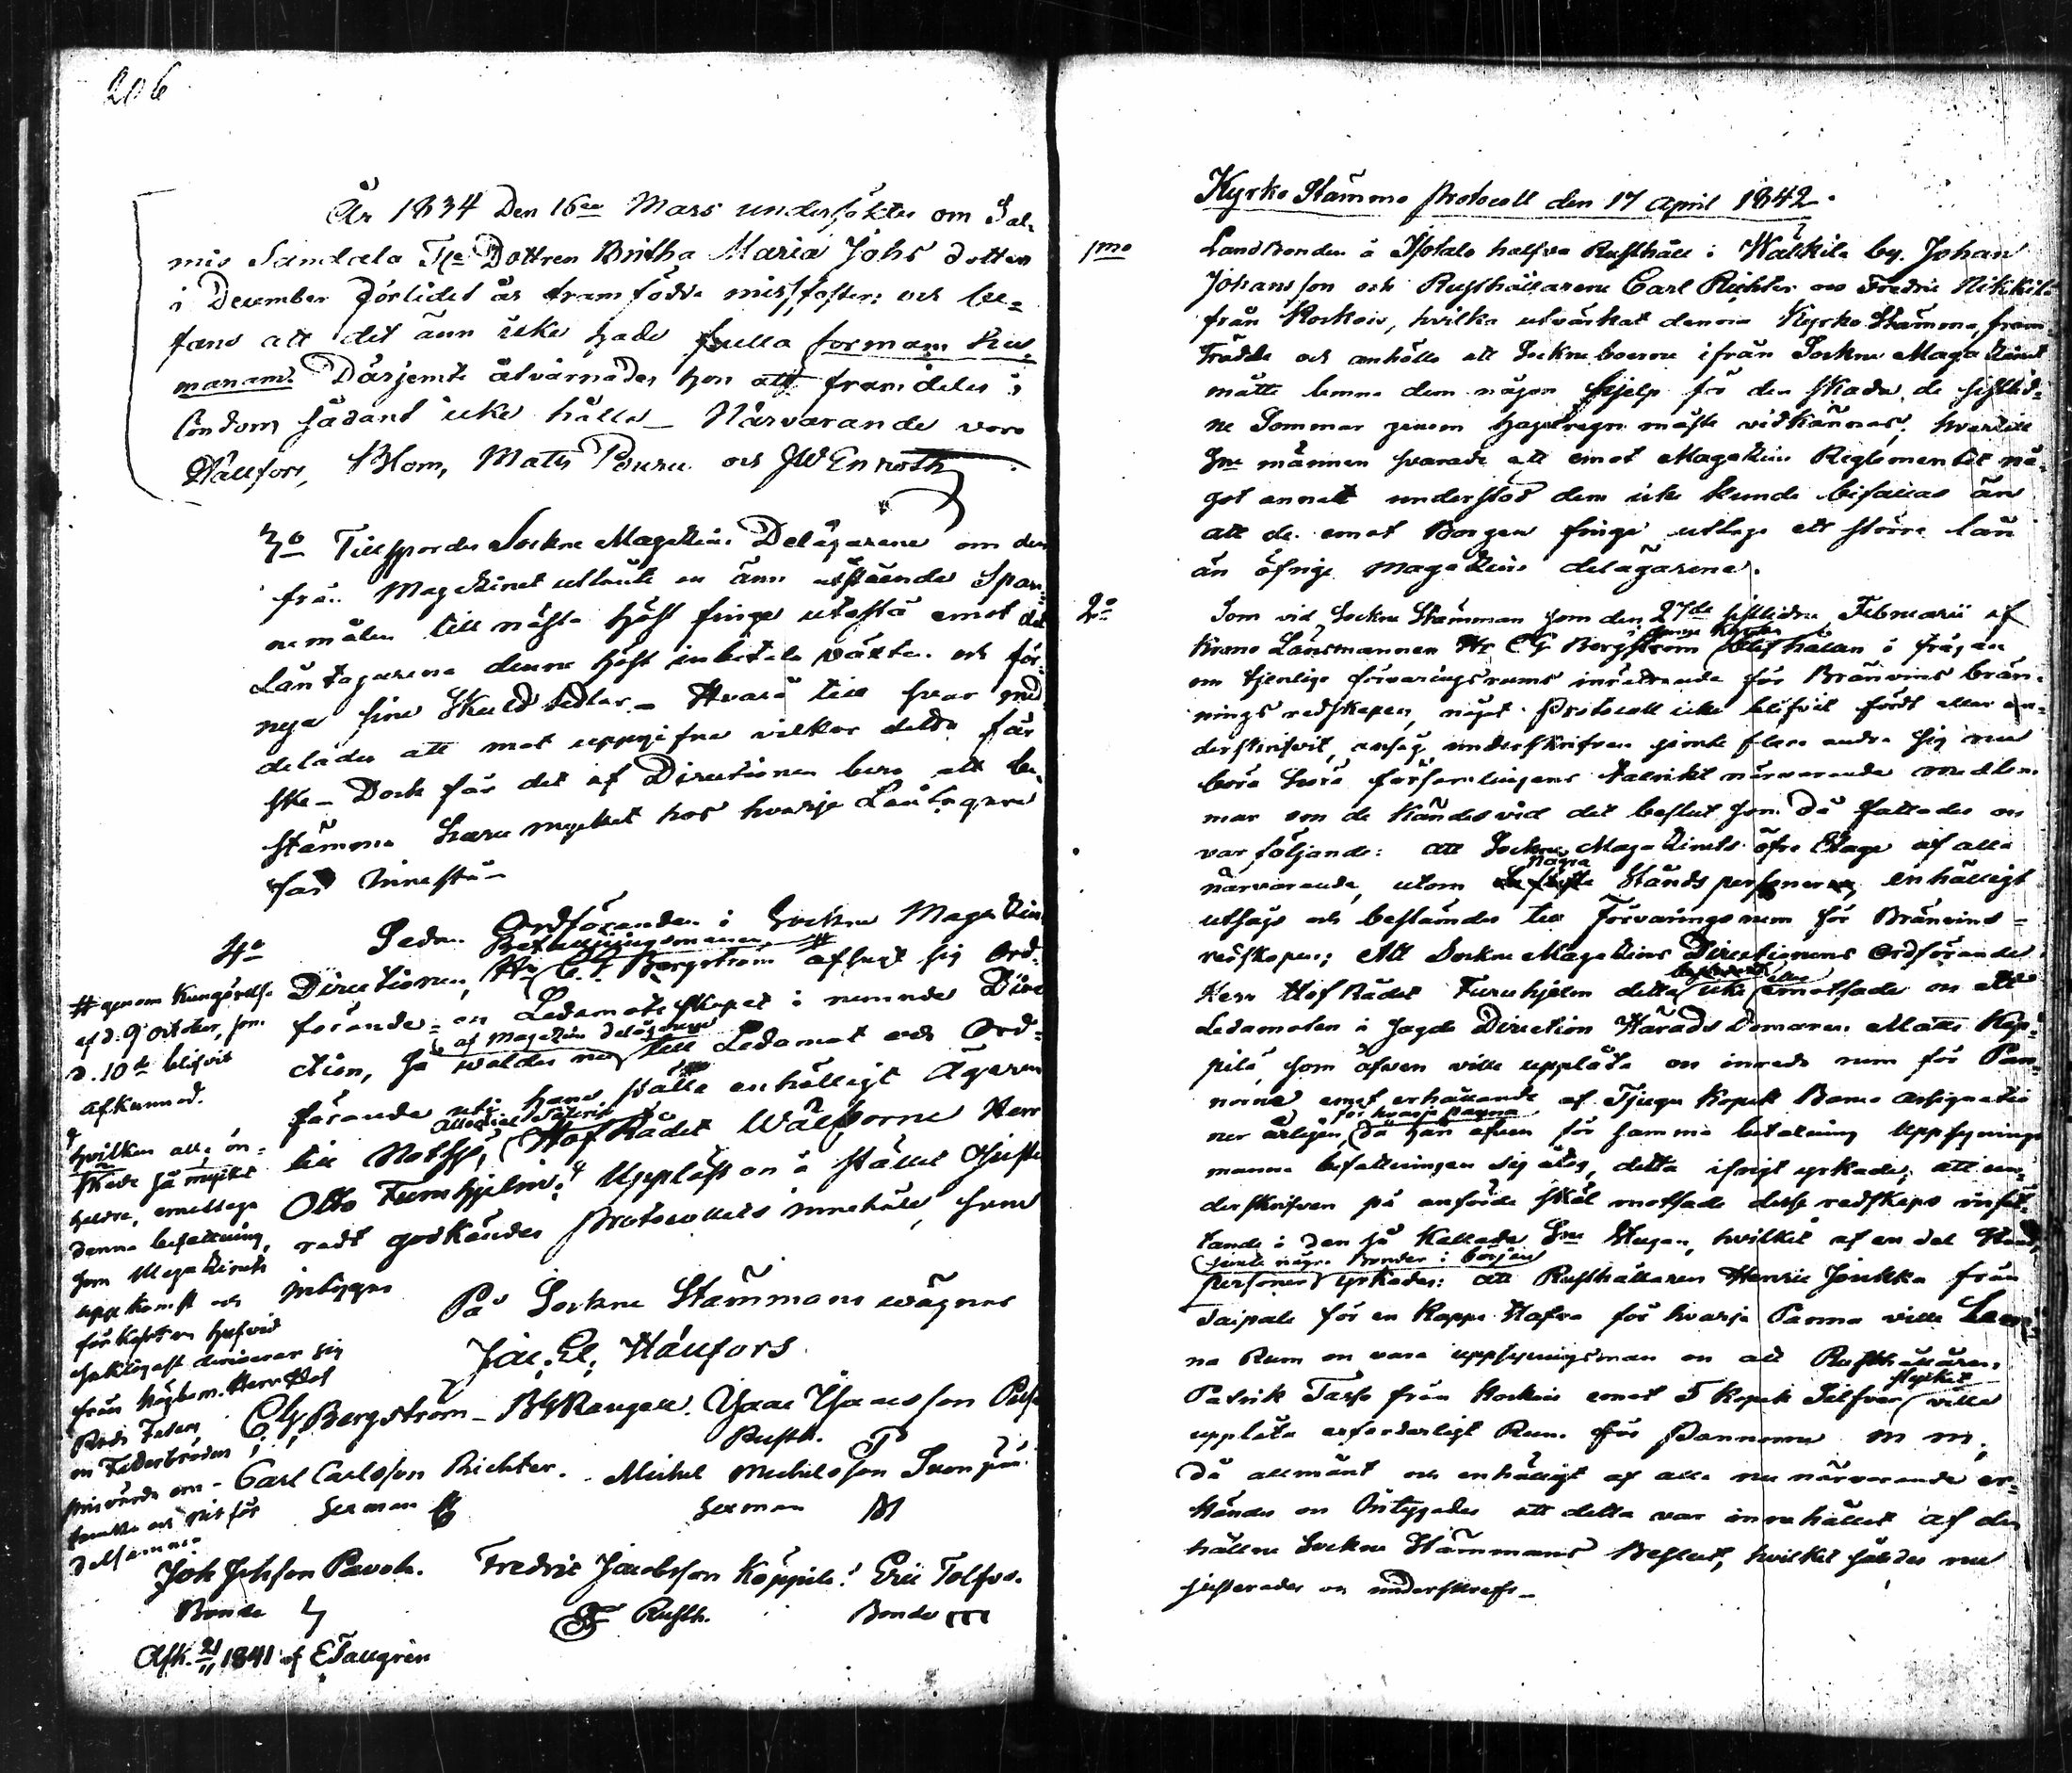 206
År 1834 Den 16de Mars undersöktes om Sal-
mis Sandala Tje Dottren Britha Maria Johs dotters
i December förlidet år framfödda missfoster; och be-
fans att det änn icke hade fulla formam hu-
manam. Därjemte åtvarnades hon att framdeles i
löndom sådant icke hålla – Närvarande voro
Hållfors, Blom, Matts Pouru och JWEnroth
3o Tillspordes Sockne Magazins Delägarene om den
från Magazinet utlånte en änn utstående Span-
nemålen till nästa höst finge utestå emot det
Låntagarene denne höst inbetala växten och för-
nya sine Skuldsedlar – Hvarå till svar med
delades att mot uppgifne vilkor detta får
ske – Dock får det af Directionen bero att be-
stämma huru mycket hos hvarje Låntagare
får innestå –
4o Sedan Ordföranden i Sockne Magazins
Befallningsmannen #
Directionen, Hr C. G. Bergström afsagt sig Ord-
förande- en Ledamotsskapet i nemnde Dire
af Magazins Delägarene
ction, så valdes nu till Ledamot och Ord-
förande uti hans ställe enhälligt Ägaren
till Hof Rådet Wälborne Herr
Otto Furuhjelm; Uppläst en å stället Juste
radt godkändes Protocollets innehåll, som
intygas
# genom Kungörelse
af d. 9 october, som
d. 10de blifvit
afkunnad.
hvilken alla ön-
skade så mycket
heldre, emottaga
denna befattning,
som Magazinets
uppkomst och
från Högbem. Herr Hof
Råds Fader,
en Faderbroder
På Sockne Stämmans vägnar
Jac. El. Hånfors
C. G. Bergström – Isaac Isacsson
Rusth.
Carl Carlsson Richter. Michel Michelsson
Sexman Sexman
Joh Johsson Pavola. Fredric Jacobsson Köppilä. Eric Tolfvo.
Bonde Rusth. Bonde
Afk. 21/11 1841 af ETallgrén
Kyrko Stämmo Protocoll den 17 April 1842.
1mo Landbonden å Isotalo halfva Rusthåll i Walkila by. Johan
Johansson och Rusthållarene Carl Richter och Fredric Nikkilä
från Korkois, hvilka utvärkat denna Kyrko Stämma, fram-
trädde och anhöllo att Sockneboerne ifrån Sockne Magazinet
måtte lemna dem någon hjelp för den skada, de sistlid-
ne Sommar genom hagelregn måste vidkännas; hvartill
Sne männen svarade att emot Magazins Reglementet nå-
got annat understöd dem icke kunde bifallas än
att de emot Borgen finge uttaga ett större lån
än öfrige Magazins delägarene.
2o Som vid Sockne Stämman som den 27de sistlidne Februarii af
Krono Länsmannen Hr C G Bergström blef hållen i frågan
om tjenliga förvaringsrums inrättande för Bränvins brän-
nings redskapen, något Protocoll icke blifvit fördt eller un-
derskrifvit, ansåg underskrifven jemte flere andra sig nu
böra höra församlingens talrikt närvarande medlem-
mar om de kändes vid det beslut som då fattades en
var följande: att Sockne Magazinets öfre Etage af alla
några
närvarande, utom Ståndspersoner, enhälligt
utsågs och bestämdes till Förvaringsrum för Bränvins-
redskapen; Att Sockne Magazins Directionens Ordförande
Herr Hof Rådet Furuhjelm detta icke emotsade en att
Ledamoten i sagde Direction Härads Domaren Matts Kep-
pilä, som äfven ville upplåta en inreda rum för Pan-
norna emot erhållande af Tjugu Kopek Banco Assignatio
för hvarje panna
ner årligen, då han äfven för samma betalning Uppsynings
manna befattningen sig åtog, detta ifrigt yrkade; att un-
derskrifven på anförde skäl motsade desse redskaps insät-
tande i den så kallade Sne Stugan, hvilket af en del Stånds
jemte några Bönder i början
personer yrkades: att Rusthållaren Henric Jonkka från
Taipale för en Kappe Hafra för hvarje Panna ville Lem-
na Rum en vara uppsyningsman en att Rusthållaren
stycket
Patrik Tarfs från Korkois emot 5 kopek Silfver ville
upplåta erforderligt Rum för Pannorna m m;
då allmänt och enhälligt af alla nu närvarande er-
kändes en Intygades att detta var innehållet af den
hållne Sockne Stämmans Beslut, hvilket således nu
justerades en underskrefs –